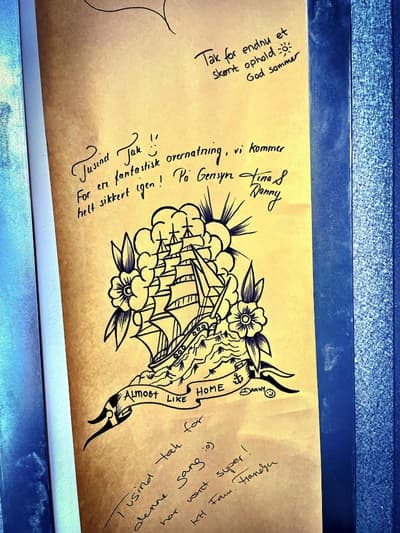 Tak for endnu et
skønt ophold
God sommer
Tusind Tak !!
For en fantastisk overnatning, vi kommer
helt sikkert igen! På Gensyn Tina S
Danny
ALMOST LIKE HOME
Danny
Tusind tak for
denne gang :o)
har været super!
KH Fam